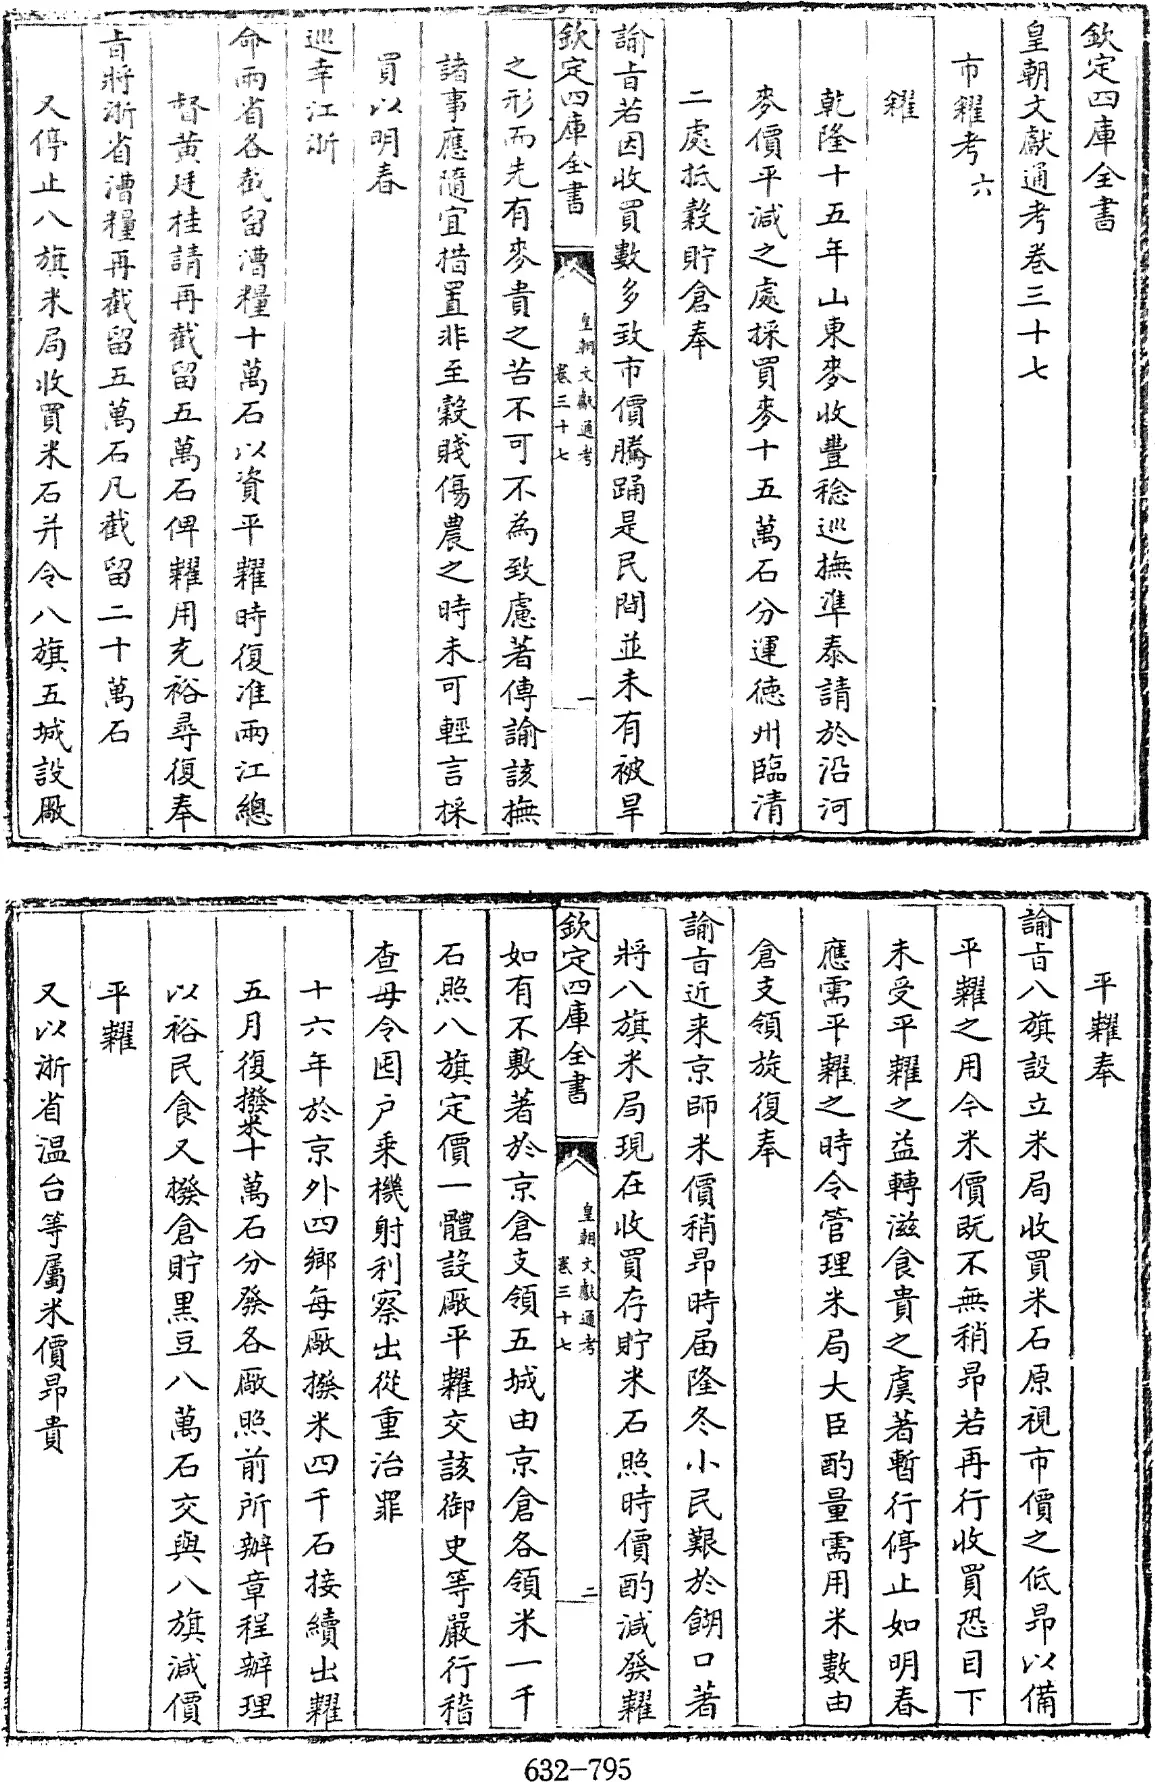 欽定四庫全書
皇朝文獻通考卷三十七
市糴考六
糴
乾隆十五年山東麥收豐稔巡撫準泰請於沿河
麥價平減之處採買麥十五萬石分運德州臨清
二處抵穀貯倉奉
諭旨若因收買數多致市價騰踊是民間並未有被旱
欽定四庫全書
皇朝文獻通考
卷三十七
一
之形而先有麥貴之苦不可不為致慮著傳諭該撫
諸事應隨宜措置非至穀賤傷農之時未可輕言採
買以明春
巡幸江浙
命兩省各截留漕糧十萬石以資平糶時復准兩江總
督黃廷桂請再截留五萬石俾糶用充裕尋復奉
旨將浙省漕糧再截留五萬石凡截留二十萬石
又停止八旗米局收買米石并令八旗五城設厰
平糶奉
諭旨八旗設立米局收買米石原視市價之低昂以備
平糶之用今米價既不無稍昂若再行收買恐目下
未受平糶之益轉滋食貴之虞著暫行停止如明春
應需平糶之時令管理米局大臣酌量需用米數由
倉支領旋復奉
諭旨近来京師米價稍昂時届隆冬小民艱於餬口著
將八旗米局現在收買存貯米石照時價酌減發糶
欽定四庫全書
皇朝文獻通考
卷三十七
二
如有不敷著於京倉支領五城由京倉各領米一千
石照八旗定價一體設厰平糶交該御史等嚴行稽
查毋令囤户乘機射利察出從重治罪
十六年於京外四鄉每厰撥米四千石接續出糶
五月復撥米十萬石分發各厰照前所辦章程辦理
以裕民食又撥倉貯黑豆八萬石交與八旗減價
平糶
又以浙省温台等屬米價昂貴
632-795